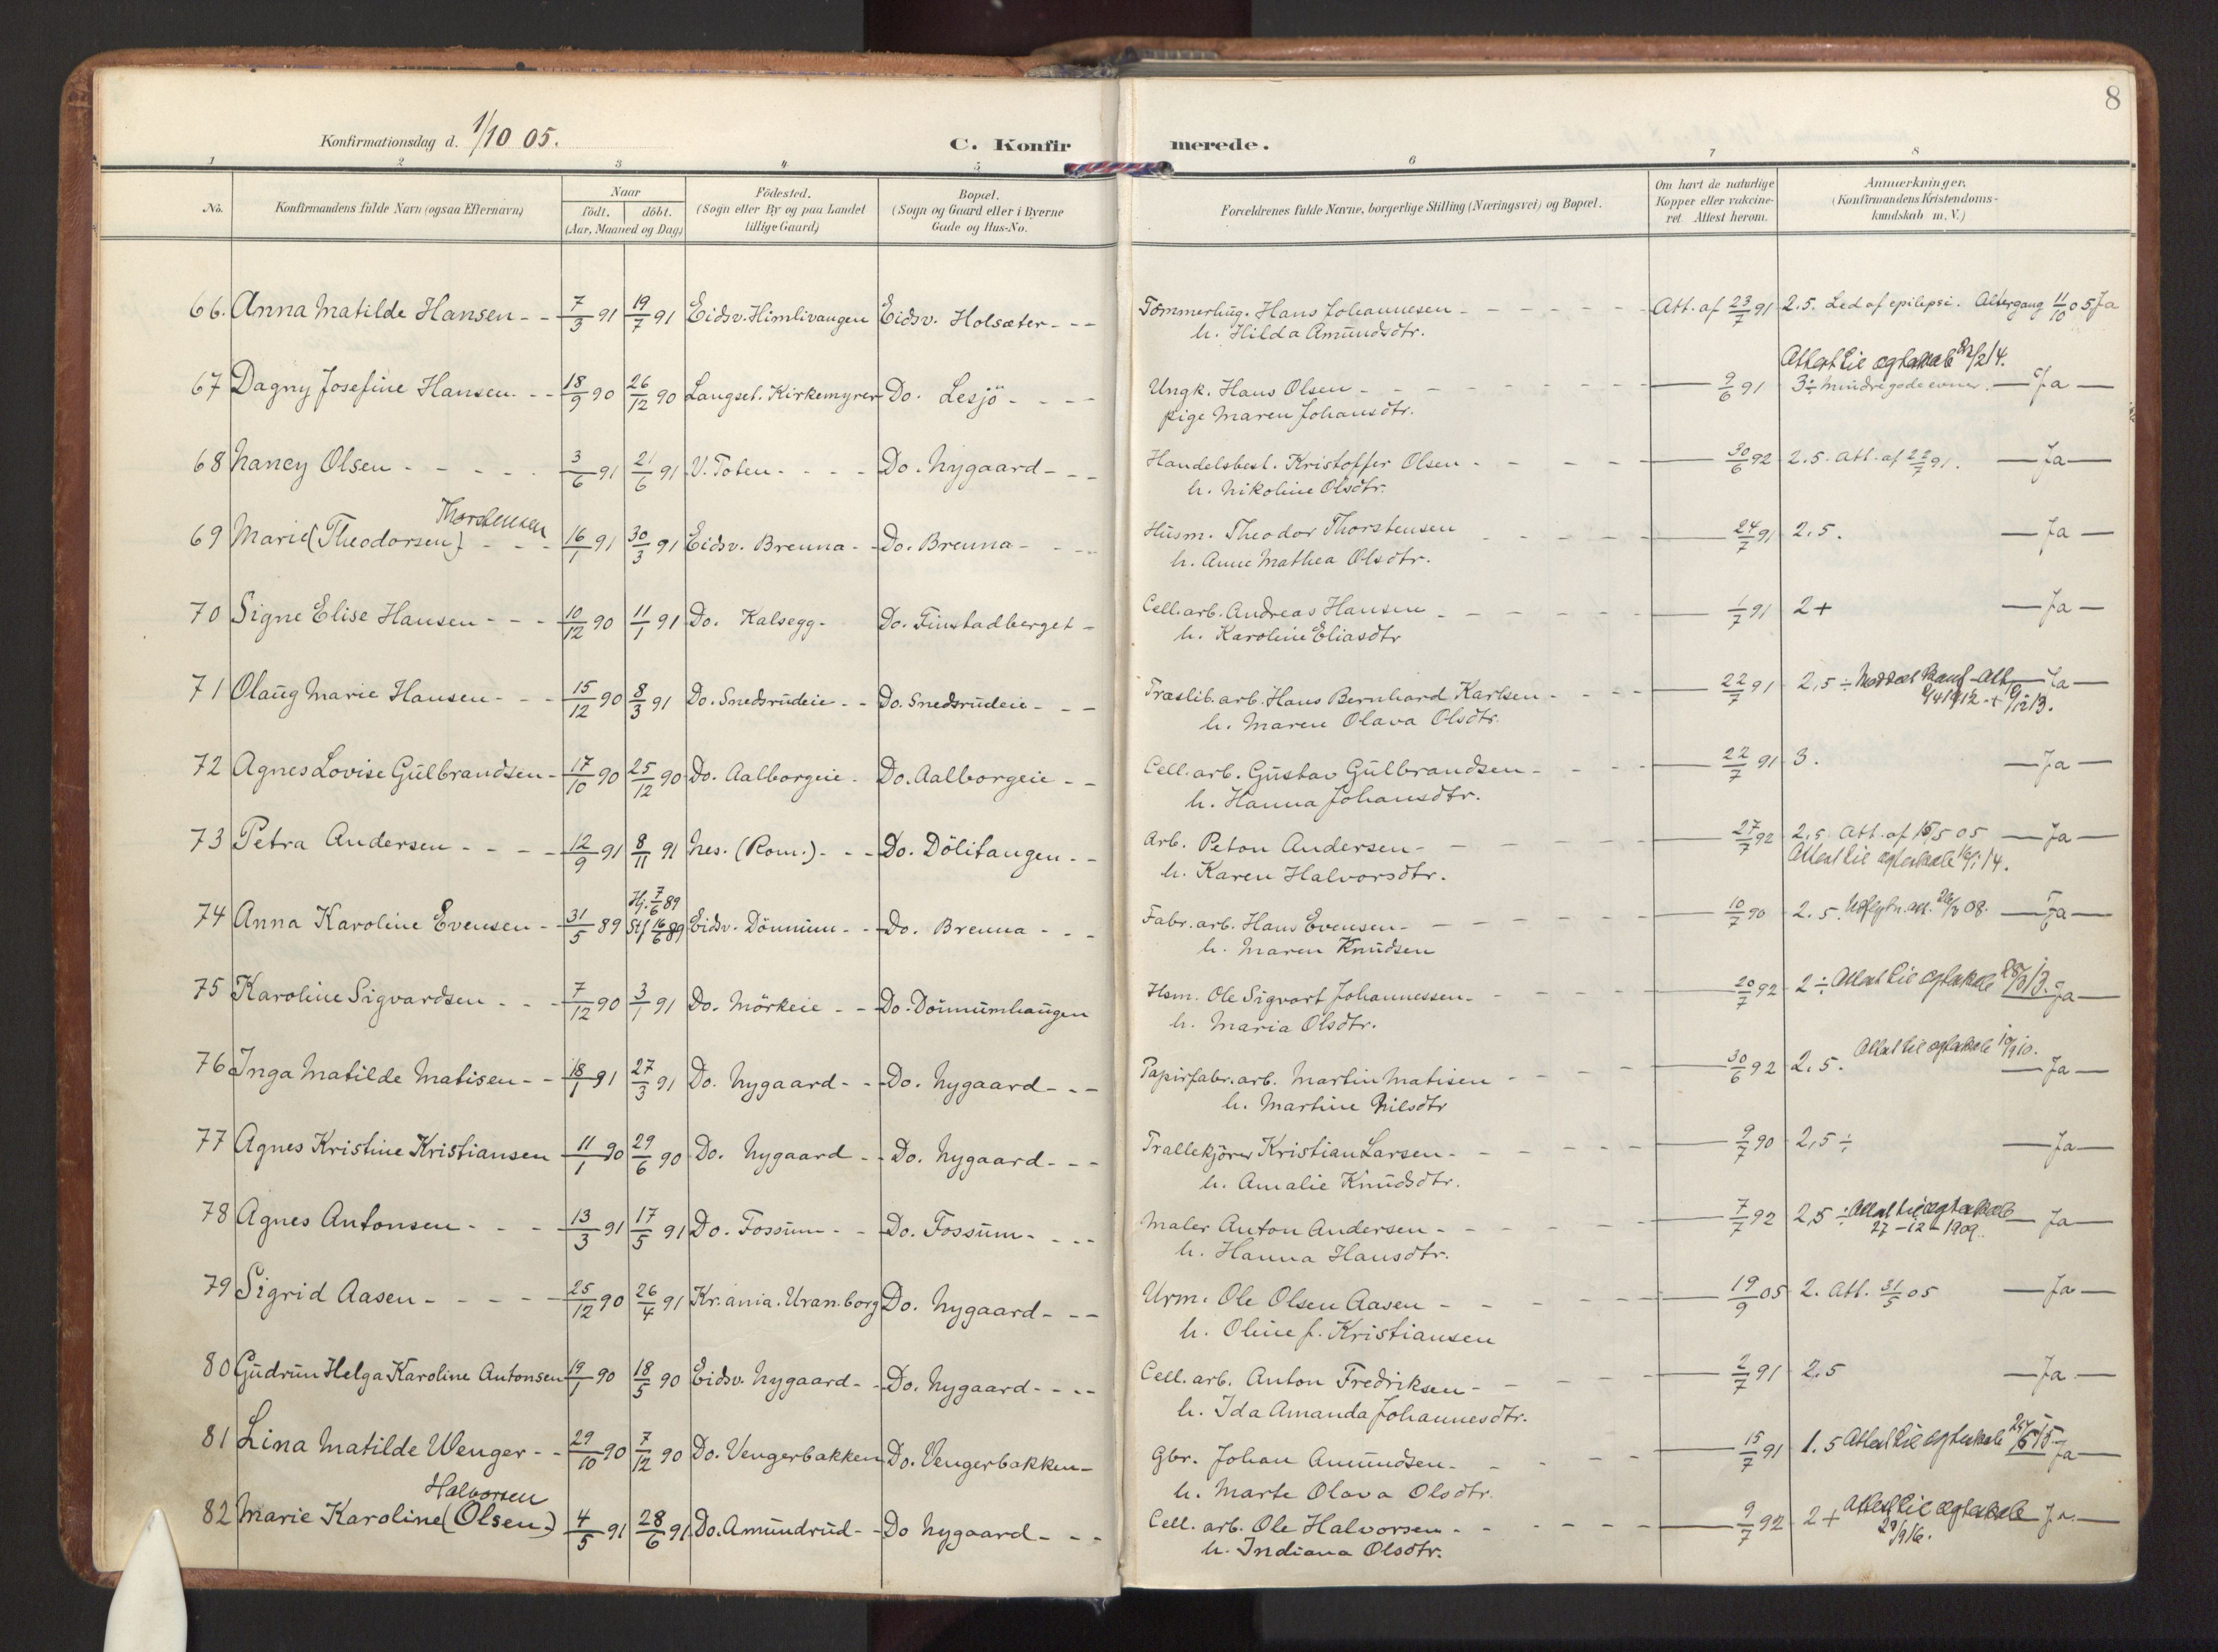 8
Konfirmationsdag d. 1/10 05.
C. Konfirmerede.
1 2 3 4 5 6 7 8
No. Konfirmandens fulde Navn (ogsaa Efternavn) Naar født. døbt. (Aar, Maaned og Dag) Fødested. (Sogn eller By og paa Landet tillige Gaard) Bopæl. (Sogn og Gaard eller i Byerne Gade og Hus-No. Forældrenes fulde Navne, borgerlige Stilling (Næringsvei) og Bopæl. Om havt de naturlige Kopper eller vaccineret. Attest herom. Anmærkninger. (Konfirmandens Kristendomskundskab m. V.)
66. Anna Matilde Hansen - - 7/3 91 19/7 91 Eidsv. Himlivangen Eidsv. Holsæter - - - Tømmerhug. Hans Johannesen - - - Att. af 23/7 91 2.5. Led af epilepsi. Altergang 11/10 05 Ja
h. Hilda Amundsdtr.
Attest til ægteskab 2/14.
67 Dagny Josefine Hansen. - - 18/9 90 26/12 90 Langset. Kirkemyrer Do. Lesjö - - - Ungk. Hans Olsen - - - 9/6 91 3÷ mindre gode evner. — Ja —
pige Maren Johansdtr.
68 Nancy Olsen - - - 3/6 91 21/6 91 V. Toten - - - Do. Nygaard - - Handelsbest. Kristoffer Olsen - - - 30/6 92 2.5. Att. af 22/7 91. — Ja —
h. Nikoline Olsdtr.
Thorstensen
69 Marie (Theodorsen) - - - 16/1 91 30/3 91 Eidsv. Brenna - - Do. Brenna - - - Husm. Theodor Thorstensen - - - 24/7 91 2.5. — Ja —
h. Anne Mathea Olsdtr.
70 Signe Elise Hansen - - - 10/12 90 11/1 91 Do. Kalsegg - Do. Finstadberget - Cell. arb. Andreas Hansen - - - 1/7 91 2+ — Ja —
h. Karoline Eliasdtr
71 Olaug Marie Hansen - - - 15/12 90 8/3 91 Do. Snedsrudeie - - Do. Snedsrudeie - - - Træslib. arb. Hans Bernhard Karlsen - - - 22/7 91 2,5 ÷ — Ja —
h. Maren Olava Olsdtr.
72 Agnes Lovise Gulbrandsen - 17/10 90 25/12 90 Do. Aalborgeie - Do. Aalborgeie - - Cell. arb. Gustav Gulbrandsen - - - 22/7 91 3. — Ja —
h. Hanna Johansdtr.
73 Petra Andersen - - - 12/9 91 8/11 91 Nes. (Rom.) - - - Do. Dölitangen - - Arb. Peton Andersen - - - 27/7 92 2,5 Att. af 15/5 05 — Ja —
h. Karen Halvorsdtr. Attest til ægteskab 16/1 14.
Hj. 7/6 89
74 Anna Karoline Evensen - 31/5 89 Stf 16/6 89 Eidsv. Dönnum - - Do. Brenna - - - Fabr. arb. Hans Evensen - - - 10/7 90 2.5. Udflytn. att. 08. — Ja —
h. Maren Knudsen
75 Karoline Sigvardsen - - - 7/12 90 3/1 91 Do. Mörkeie - - Do. Dönnumhaugen Hsm. Ole Sigvart Johannessen - - - 20/7 92 2 ÷ Attest til ægteskab 13. Ja —
h. Maria Olsdtr.
Attest til ægteskab
76 Inga Matilde Matisen - - 18/1 91 27/3 91 Do. Nygaard - - Do. Nygaard - - - Papirfabr. arb. Martin Matisen - - - 30/6 92 2.5. — Ja —
h. Martine Nilsdtr
77 Agnes Kristine Kristiansen 11/1 90 29/6 90 Do. Nygaard - - Do. Nygaard - - - Trallekjörer Kristian Larsen - - - 9/7 90 2,5 ÷ — Ja —
h. Amalie Knudsdtr.
78 Agnes Antonsen - - - 13/3 91 17/5 91 Do. Fossum - - Do. Fossum - - - Maler Anton Andersen - - - 7/7 92 2,5 ÷ Attest til ægteskab — Ja —
h. Hanna Hansdtr. 27 - 12 - 1909.
79 Sigrid Aasen - - - 25/12 90 26/4 91 Kr.ania. Uran.borg Do. Nygaard - - - Urm. Ole Olsen Aasen - - - 19/9 05 2. Att. 31/5 05 — Ja —
h. Oline f. Kristiansen
80 Gudrun Helga Karoline Antonsen 19/1 90 18/5 90 Eidsv. Nygaard - - Do. Nygaard - - - Cell. arb. Anton Fredriksen - - - 2/7 91 2,5 — Ja —
h. Ida Amanda Johannesdtr.
81 Lina Matilde Wenger - - 29/10 90 7/12 90 Do. Vengerbakken Do. Vengerbakken - Gbr. Johan Amundsen - - - 15/7 91 1.5 Attest til ægteskab 15. Ja —
h. Marte Olava Olsdtr.
Halvorsen
82 Marie Karoline (Olsen) 4/5 91 28/6 91 Do. Amundrud - - Do Nygaard - - - Cell. arb. Ole Halvorsen - - - 9/7 92 2 + Attest til ægteskab Ja. —
h. Indiana Olsdtr. 29/9 16.